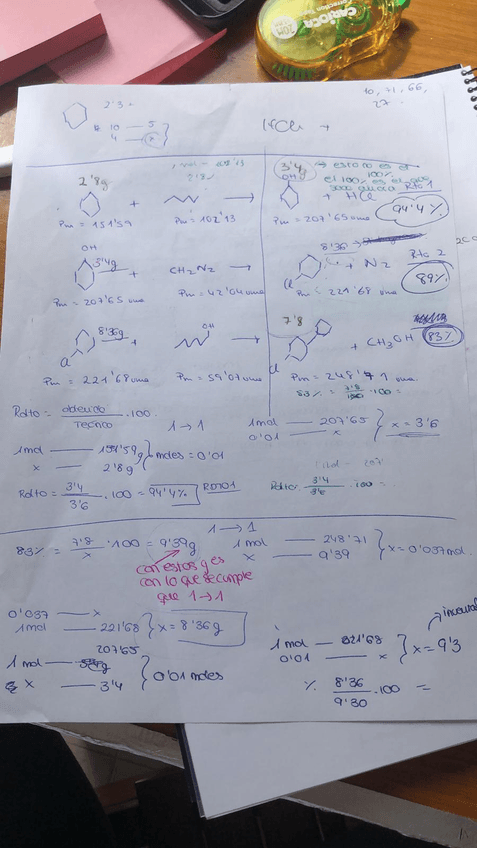 CARIOCA
2'3
10, 71, 66,
27.
10 — 5
4 —
HCl +
2'8g
+
3'4g → esto no es el
100%
OH
el 100% es el que
+ HCl
Rto 1
94'4%
Pm = 151'59
Pm = 102'13
Pm = 207'65 uma
OH
3'4g
+ CH2N2 →
8'36 →
Cl
+ N2
Rto 2
89%
Pm = 207'65 uma
Pm = 42'04 uma
Pm = 221'68 uma
8'36g
Cl
+
OH
→
7'8
Cl
+ CH3OH
83%
Pm = 221'68 uma
Pm = 59'07 uma
Pm = 248'71 uma
83% = 7'8 / · 100 =
Rdto = obtenido / Teórico · 100
1 → 1
1 mol — 207'65
0'01 — x
x = 3'6
1 mol — 151'59g
x — 2'8g
moles = 0'01
Rdto = 3'4 / 3'6 · 100 = 94'4%
RDTO1
Rdto = 3'4 / 3'6 · 100 =
1 → 1
83% = 7'8 / x · 100 = 9'39g
1 mol — 248'71
x — 9'39
x = 0'037 mol.
con estos g es
con lo que se cumple
que 1 → 1
0'037 — x
1 mol — 221'68
x = 8'36g
207'65
1 mol —
x — 3'4
0'01 moles
1 mol — 221'68
0'01 — x
x = 9'3
% 8'36 / 9'30 · 100 =